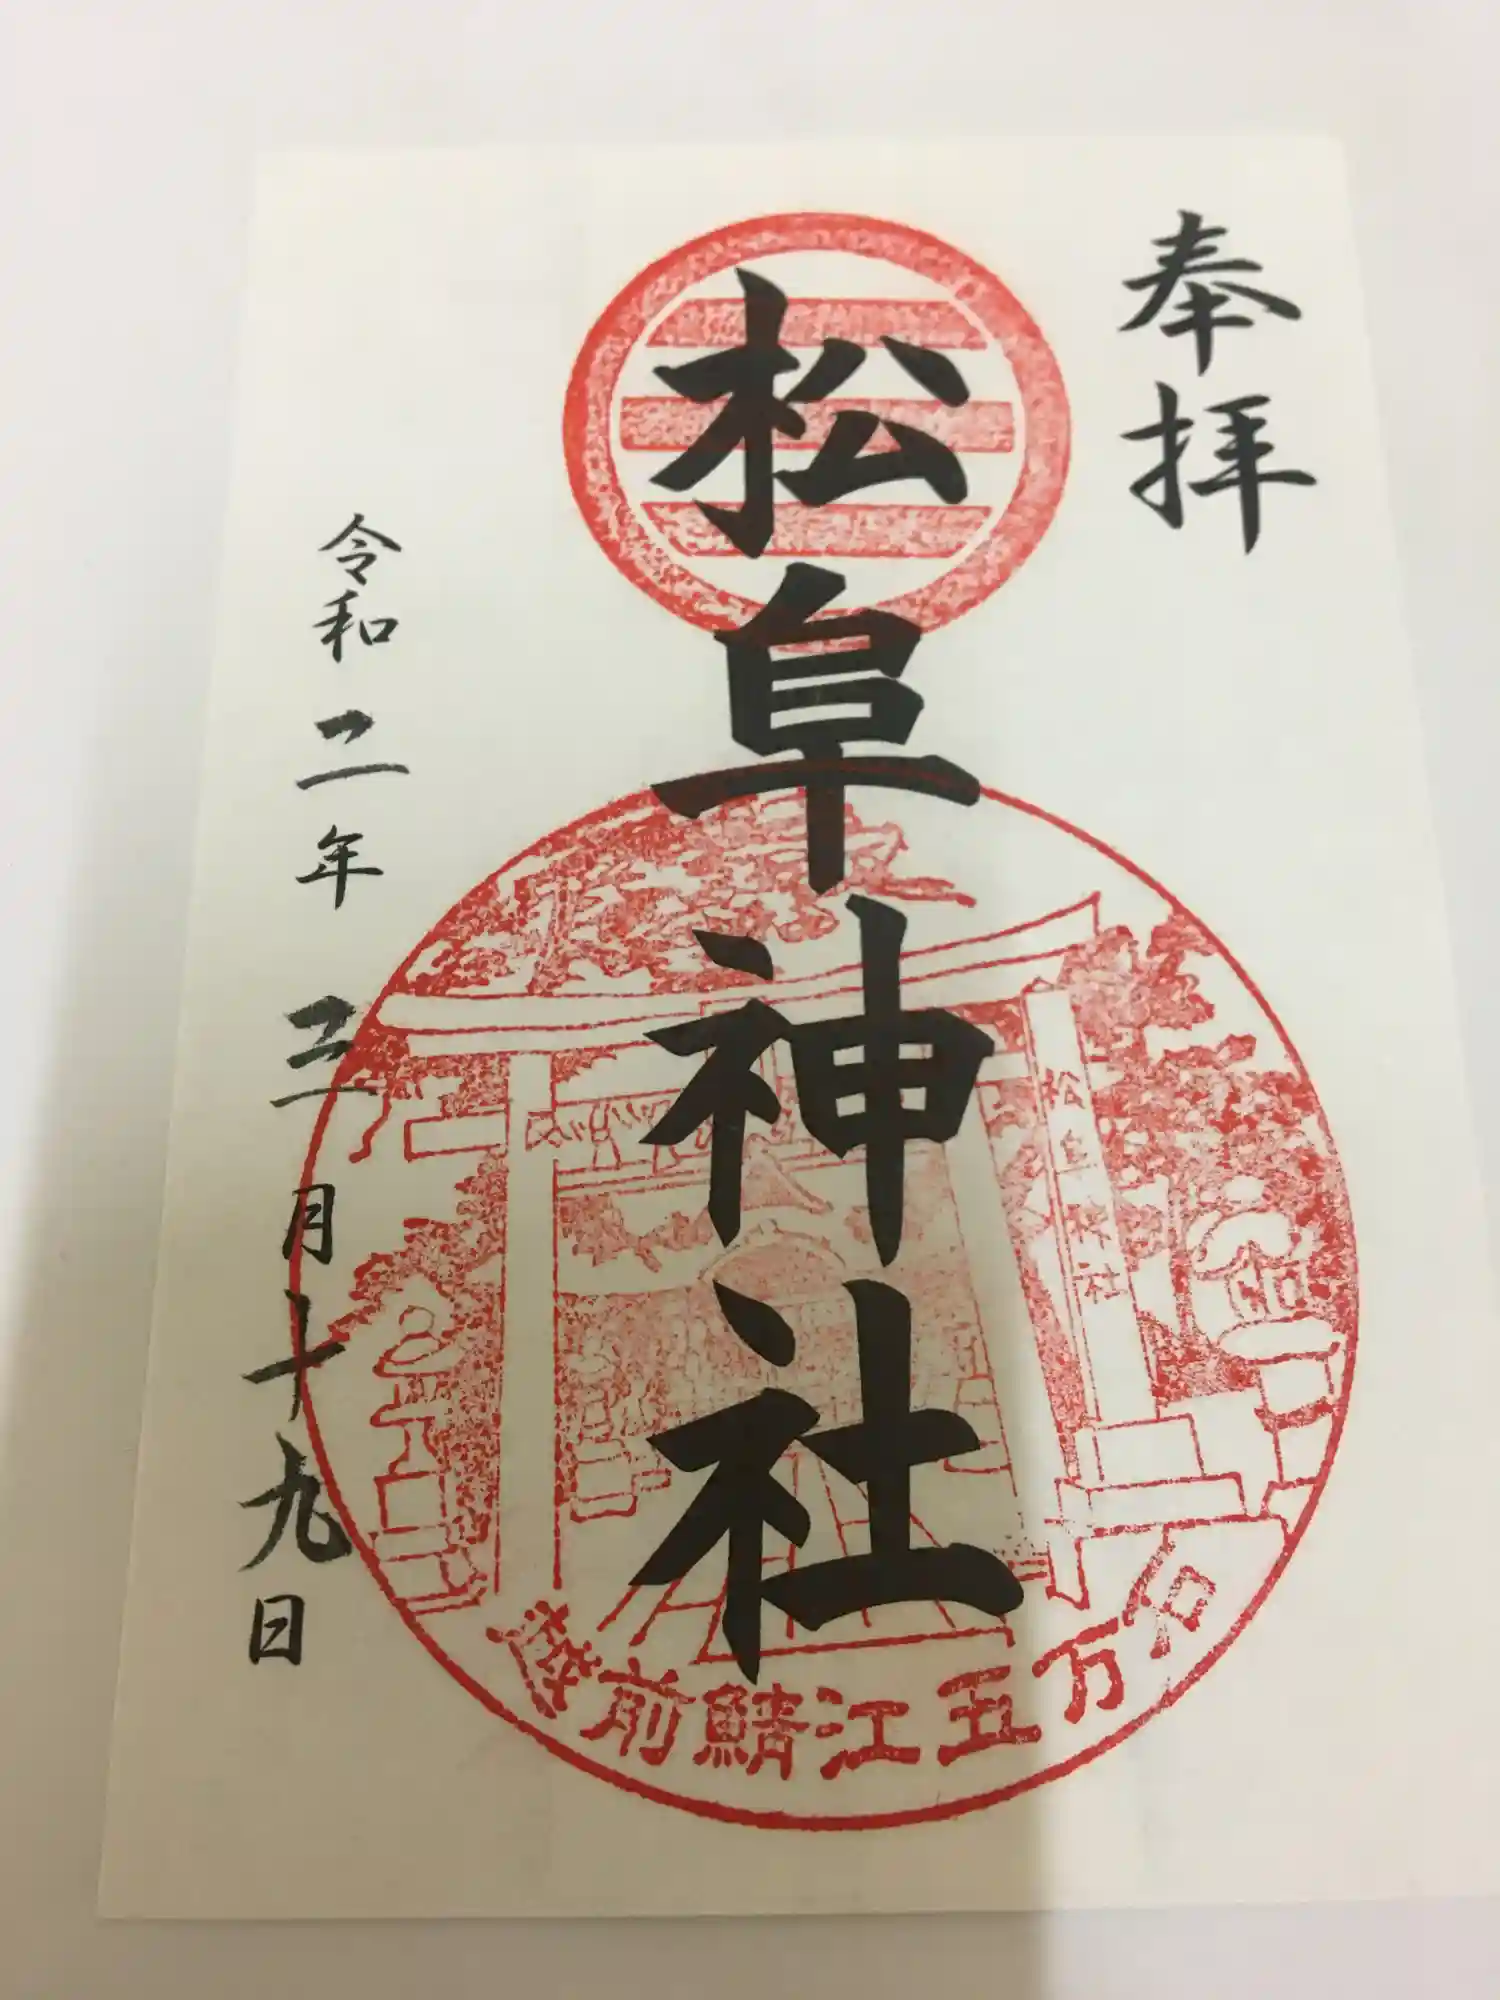 奉拝
松阜神社
令和二年三月十九日
松阜神社
越前鯖江五万石